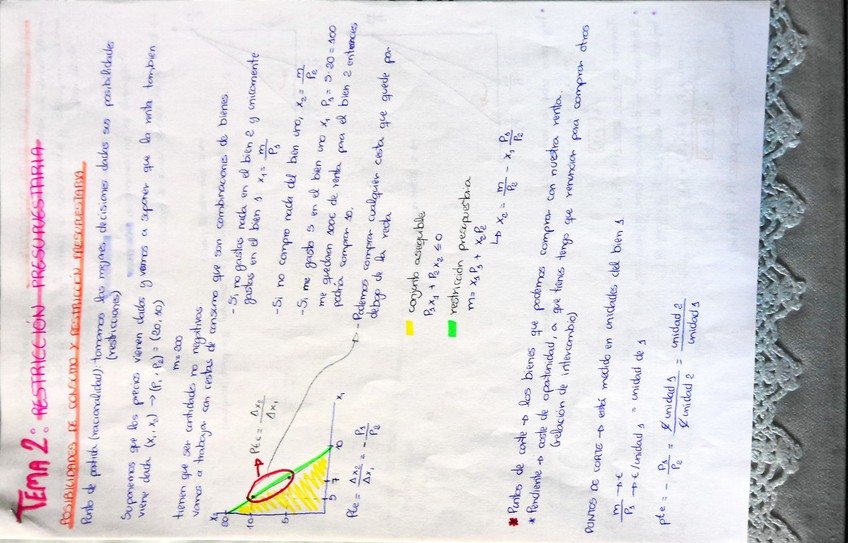 TEMA 2: RESTRICCIÓN PRESUPUESTARIA
POSIBILIDADES DE CONSUMO Y RESTRICCIÓN PRESUPUESTARIA
Punto de partida (racionalidad) tomamos las mejores decisiones dadas sus posibilidades
(restricciones)
Suponemos que los precios vienen dados y vamos a suponer que la renta tambien
viene dada (x₁, x₂) → (P₁, P₂) = (20, 10)
m = 200
tienen que ser cantidades no negativas.
vamos a trabajar con cestas de consumo que son combinaciones de bienes
- Si, no gastas nada en el bien 2 y unicamente
gastas en el bien 1. x₁ = m/P₁
- Si, no compro nada del bien uno, x₂ = m/P₂
- Si, me gasto 5 en el bien uno x₁ P₁ = 5·20 = 100
me quedaran 100€ de renta para el bien 2 entonces
podria comprar 10.
- Podemos comprar cualquier cesta que quede por
debajo de la recta
x₂
20
10
5
5
7
10
x₁
Pte = Δx₂/Δx₁
Pte = Δx₂/Δx₁ = - P₁/P₂
conjunto asequible
P₁x₁ + P₂x₂ ≤ 0
restricción presupuestaria
m = x₁P₁ + x₂P₂
↳ x₂ = m/P₂ - x₁ P₁/P₂
* Puntos de corte → los bienes que podemos comprar con nuestra renta.
* Pendiente → coste de oportunidad, a que tienes tengo que renunciar para comprar otros
(relación de intercambio)
PUNTOS DE CORTE → está medido en unidades del bien 1
m/P₁ → €/€/unidad 1 = unidad de 1
pte = - P₁/P₂ = €/unidad 1 / €/unidad 2 = unidad 2/unidad 1